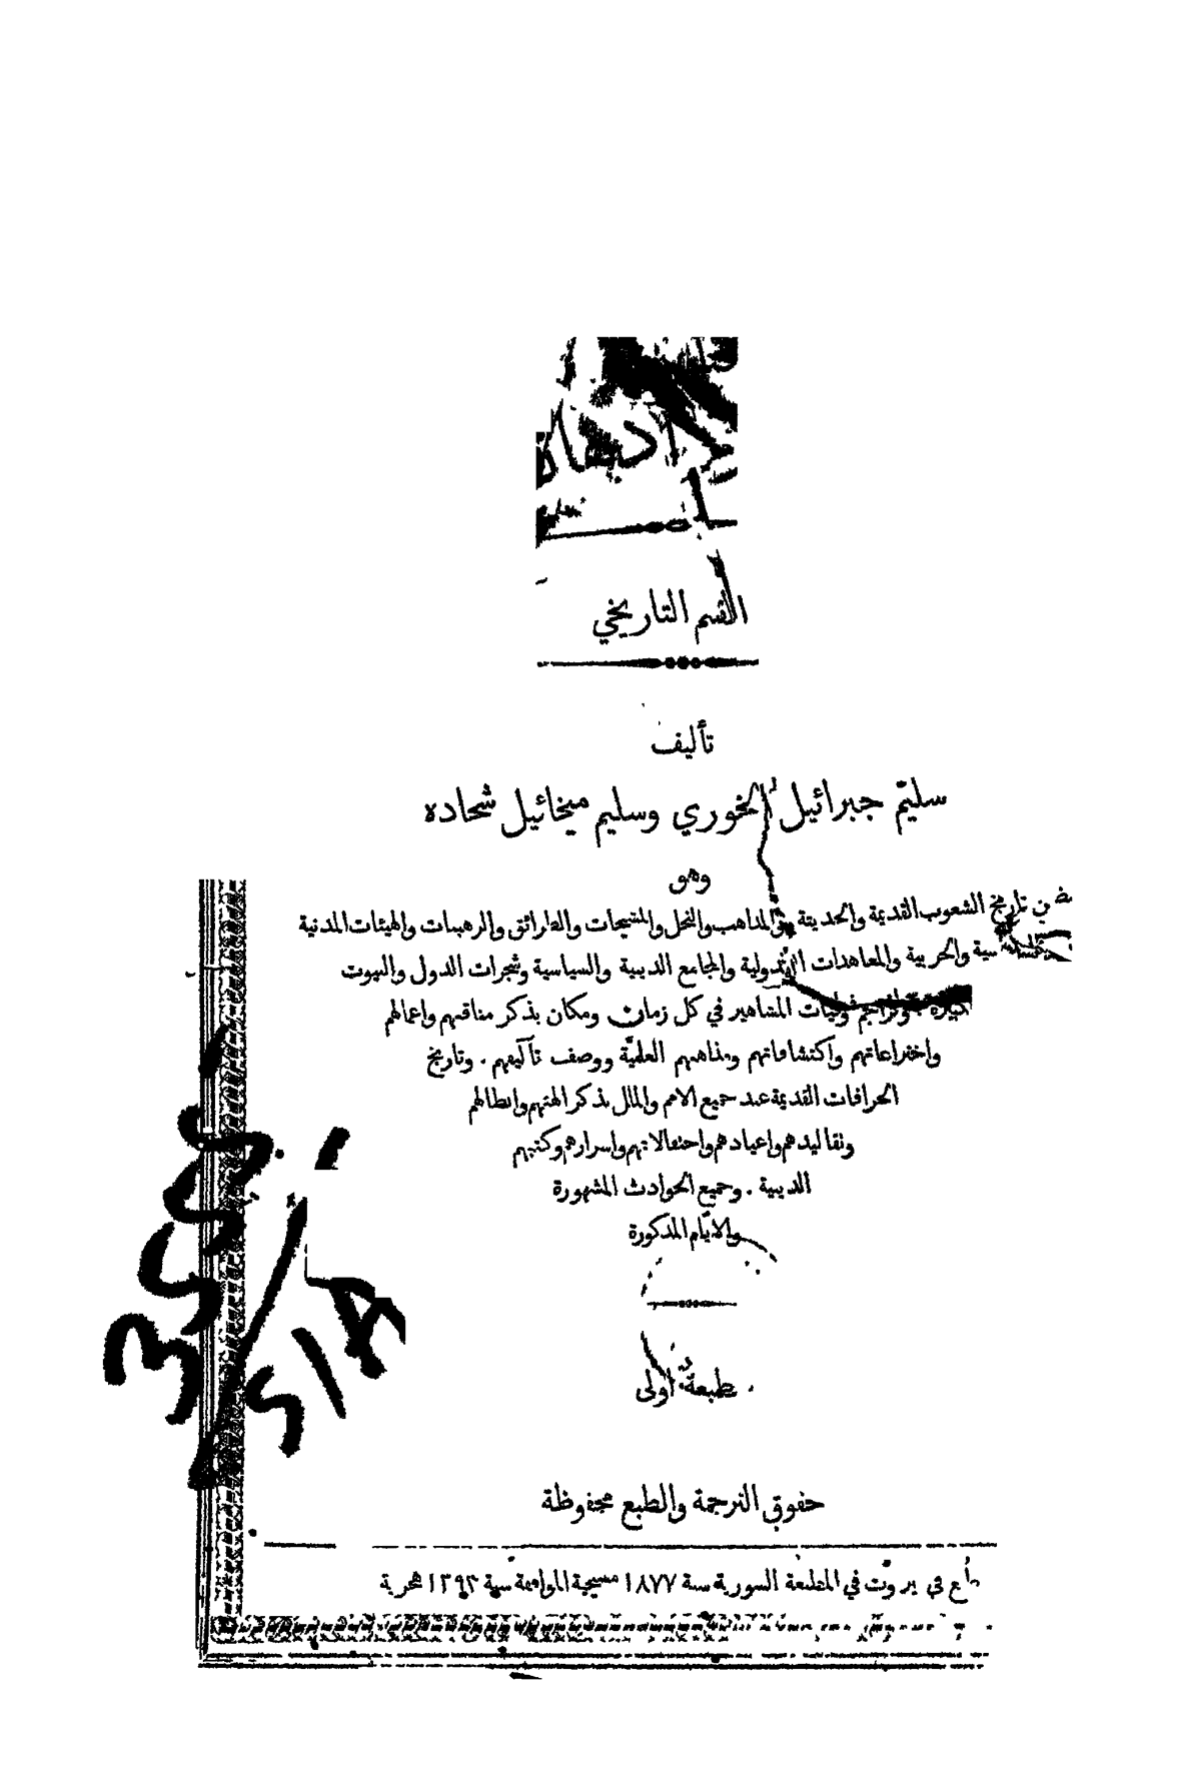 القسم التاريخي
تأليف
سليم جبرائيل الخوري وسليم ميخائيل شحاده
وهو
تاريخ الشعوب القديمة والحديثة والمذاهب والنحل والمشيخات والطرائق والرهبنات والهيئات المدنية
والحربية والمعاهدات الدولية والمجامع الدينية والسياسية وشجرات الدول والبيوت
الكبيرة وتراجم وفيات المشاهير في كل زمان ومكان بذكر مناقبهم واعمالهم
واختراعاتهم واكتشافاتهم ومذاهبهم العلميّة ووصف تآليفهم . وتاريخ
الخرافات القديمة عند جميع الامم والملل بذكر الهتهم وابطالهم
وتقاليدهم واعيادهم واحتفالاتهم واسرارهم وكتبهم
الدينية . وجميع الحوادث المشهورة
والايّام المذكورة
طبعة اولى
حقوق الترجمة والطبع محفوظة
في بيروت في المطبعة السورية سنة ١٨٧٧ مسيحية الموافقة سنة ١٢٩٤ هجرية
٣٤٤٤